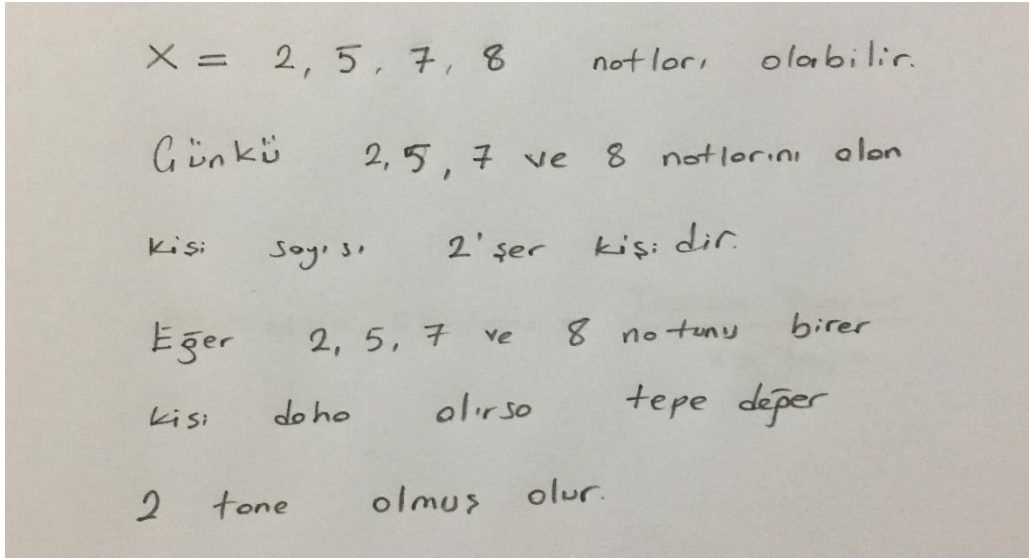 X = 2, 5, 7, 8 notları olabilir.
Günkü 2, 5, 7 ve 8 notlarını alan
kişi sayısı 2'şer kişidir.
Eğer 2, 5, 7 ve 8 notunu birer
kişi daha alırsa tepe değer
2 tane olmuş olur.